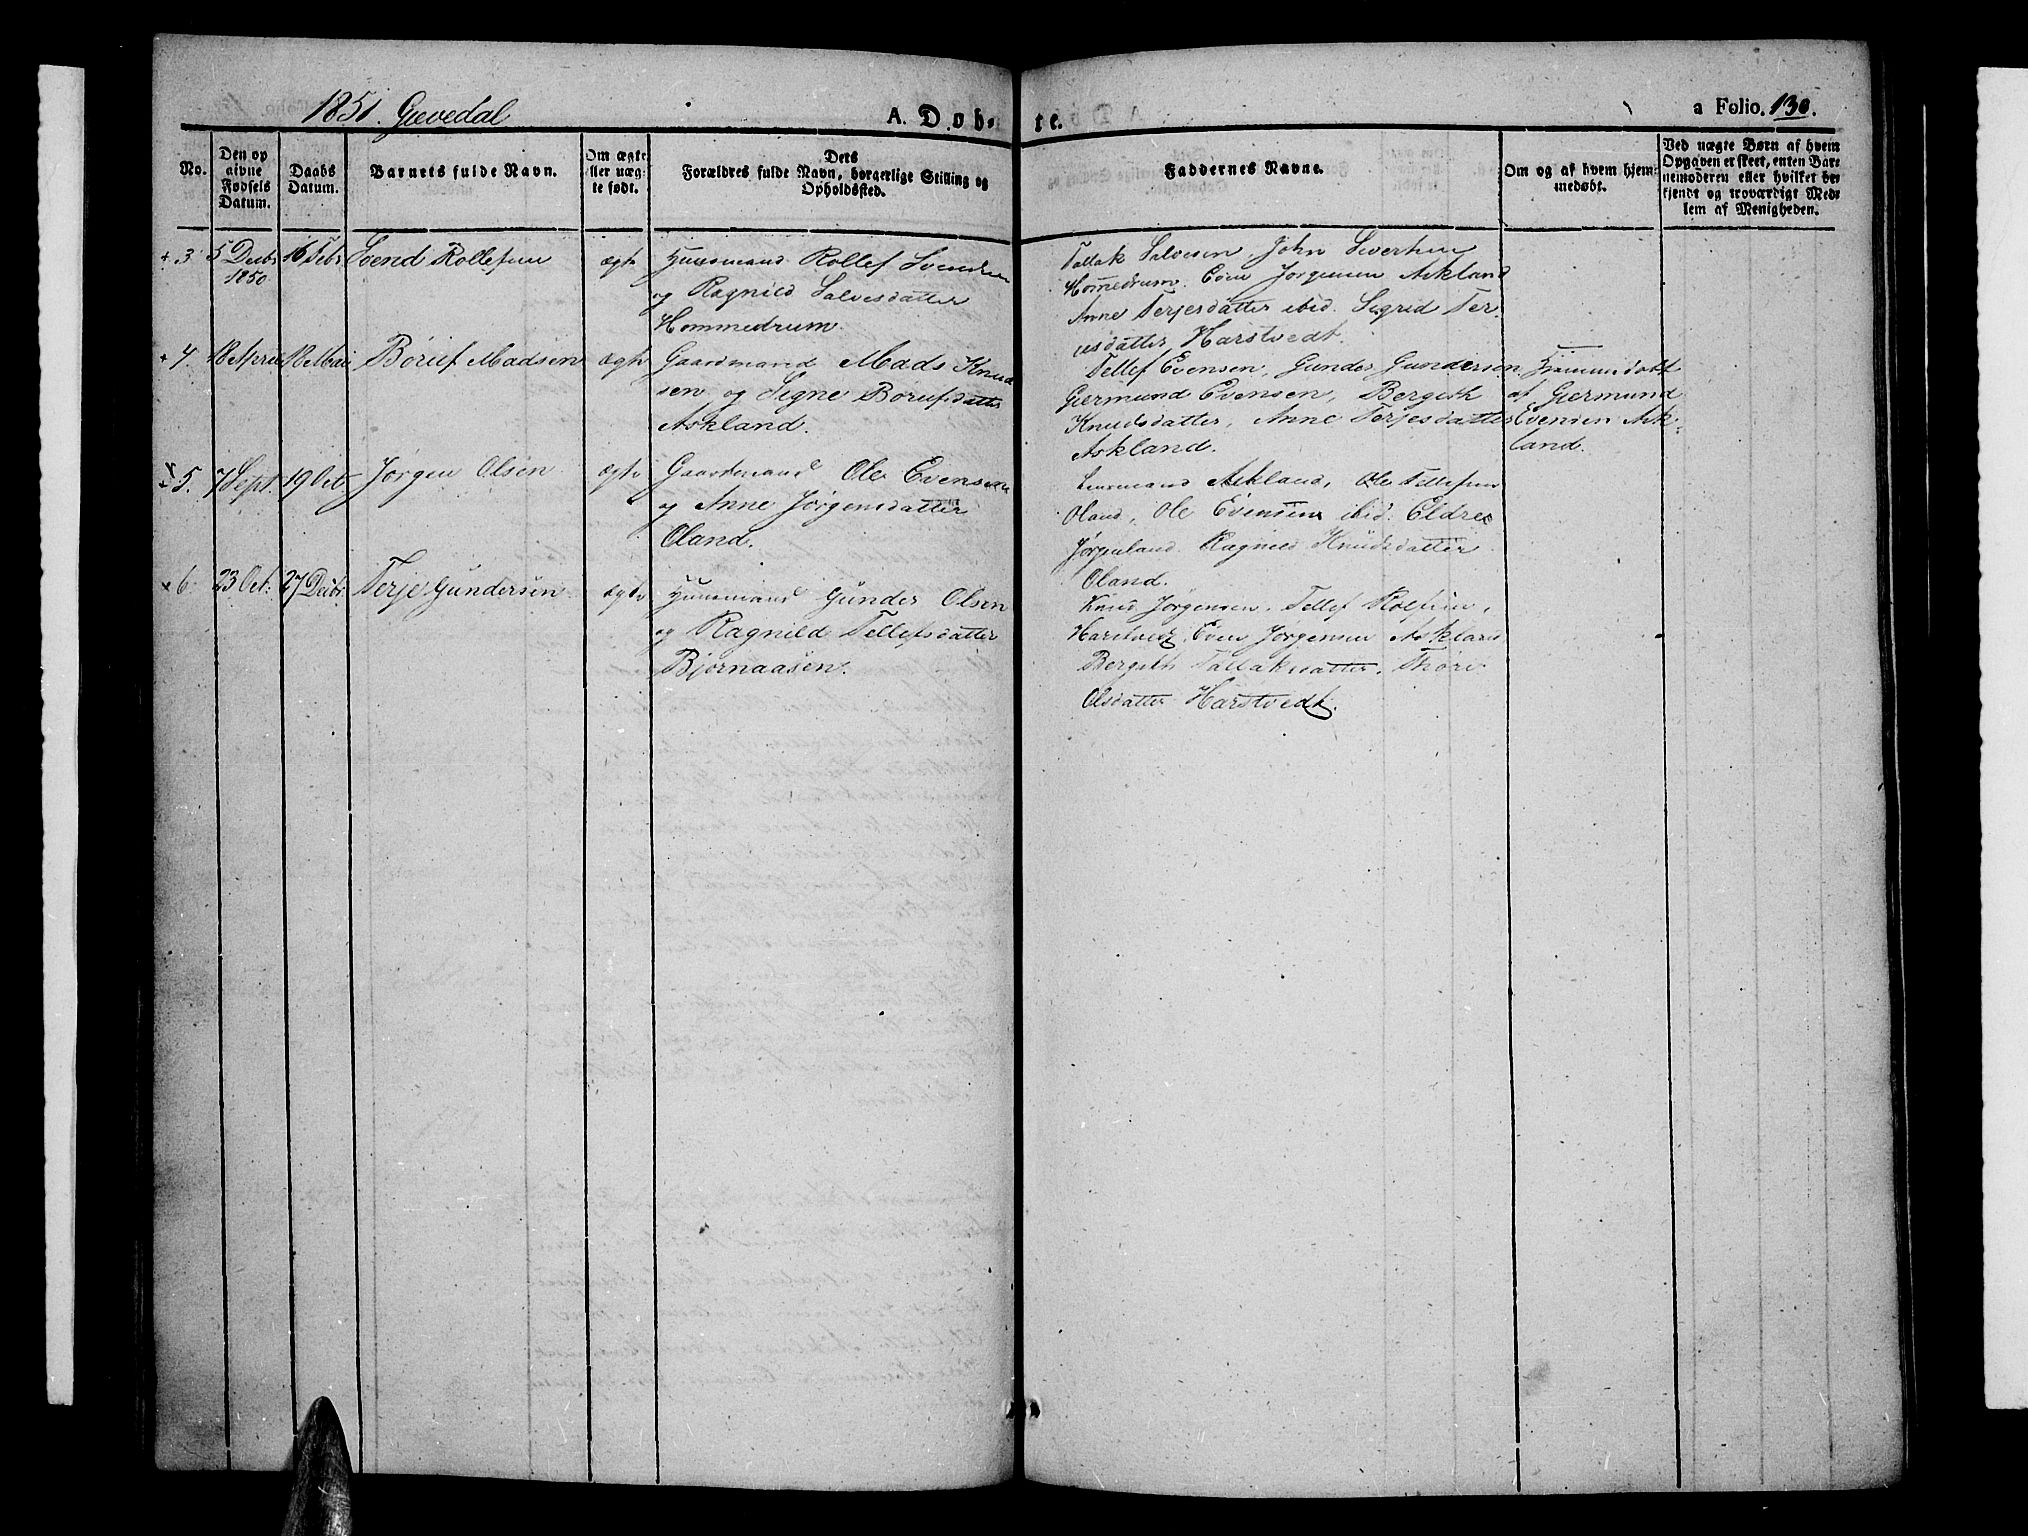 1851. Gjevedal
A. Døb-
te.
a Folio. 130.
No.
Den op
givne
Fødsels
Datum.
Daabs
Datum.
Barnets fulde Navn.
Om ægte
eller uæg-
te født.
Dets
Forældres fulde Navn, borgerlige Stilling og
Opholdssted.
Faddernes Navne.
Om og af hvem hjem-
medøbt.
Ved uægte Børn af hvem
Opgaven er skeet, enten Bar-
nemoderen eller hvilket be-
kjendt og troværdigt Med-
lem af Menigheden.
+ 3 5 Decbr 16 Febr Svend Rollefsen ægte Huusmand Rollef Svendsen
1850
og Ragnild Salvesdatter
Hommedrum.
Tallak Salvesen, John Sivertsen
Hommedrum. Even Jørgensen Askland
Anne Terjesdatter ibid. Sigrid Ter-
jesdatter Harstvedt.
+ 4. 18 April 18 Mai Børuf Madsen ægte Gaardmand Mads Knud
sen og Signe Børufsdatter
Askland.
Tellef Evensen, Gunder Gundersen
Gjermund Evensen, Bergith
Knudsdatter, Anne Terjesdatter
Askland.
Hjemmedøbt
af Gjermund
Evensen Ask-
land.
5. 7 Sept. 19 Oct Jørgen Olsen ægte Gaardmand Ole Evensen
og Anne Jørgensdatter
Oland.
Lensmand Askland, Ole Tellefsen
Oland, Ole Evensen ibid. Eldrec
Ragnild Knudsdatter
Oland.
6. 23 Oct. 27 Decbr. Terje Gundersen ægte Huusmand Gunder Olsen
og Ragnild Tellefsdatter
Bjørnaasen.
Knud Jørgensen, Tellef Rolfsen,
Harstvedt, Even Jørgensen Askland
Bergith Tallaksdatter, Thore
Olsdatter Harstvedt.